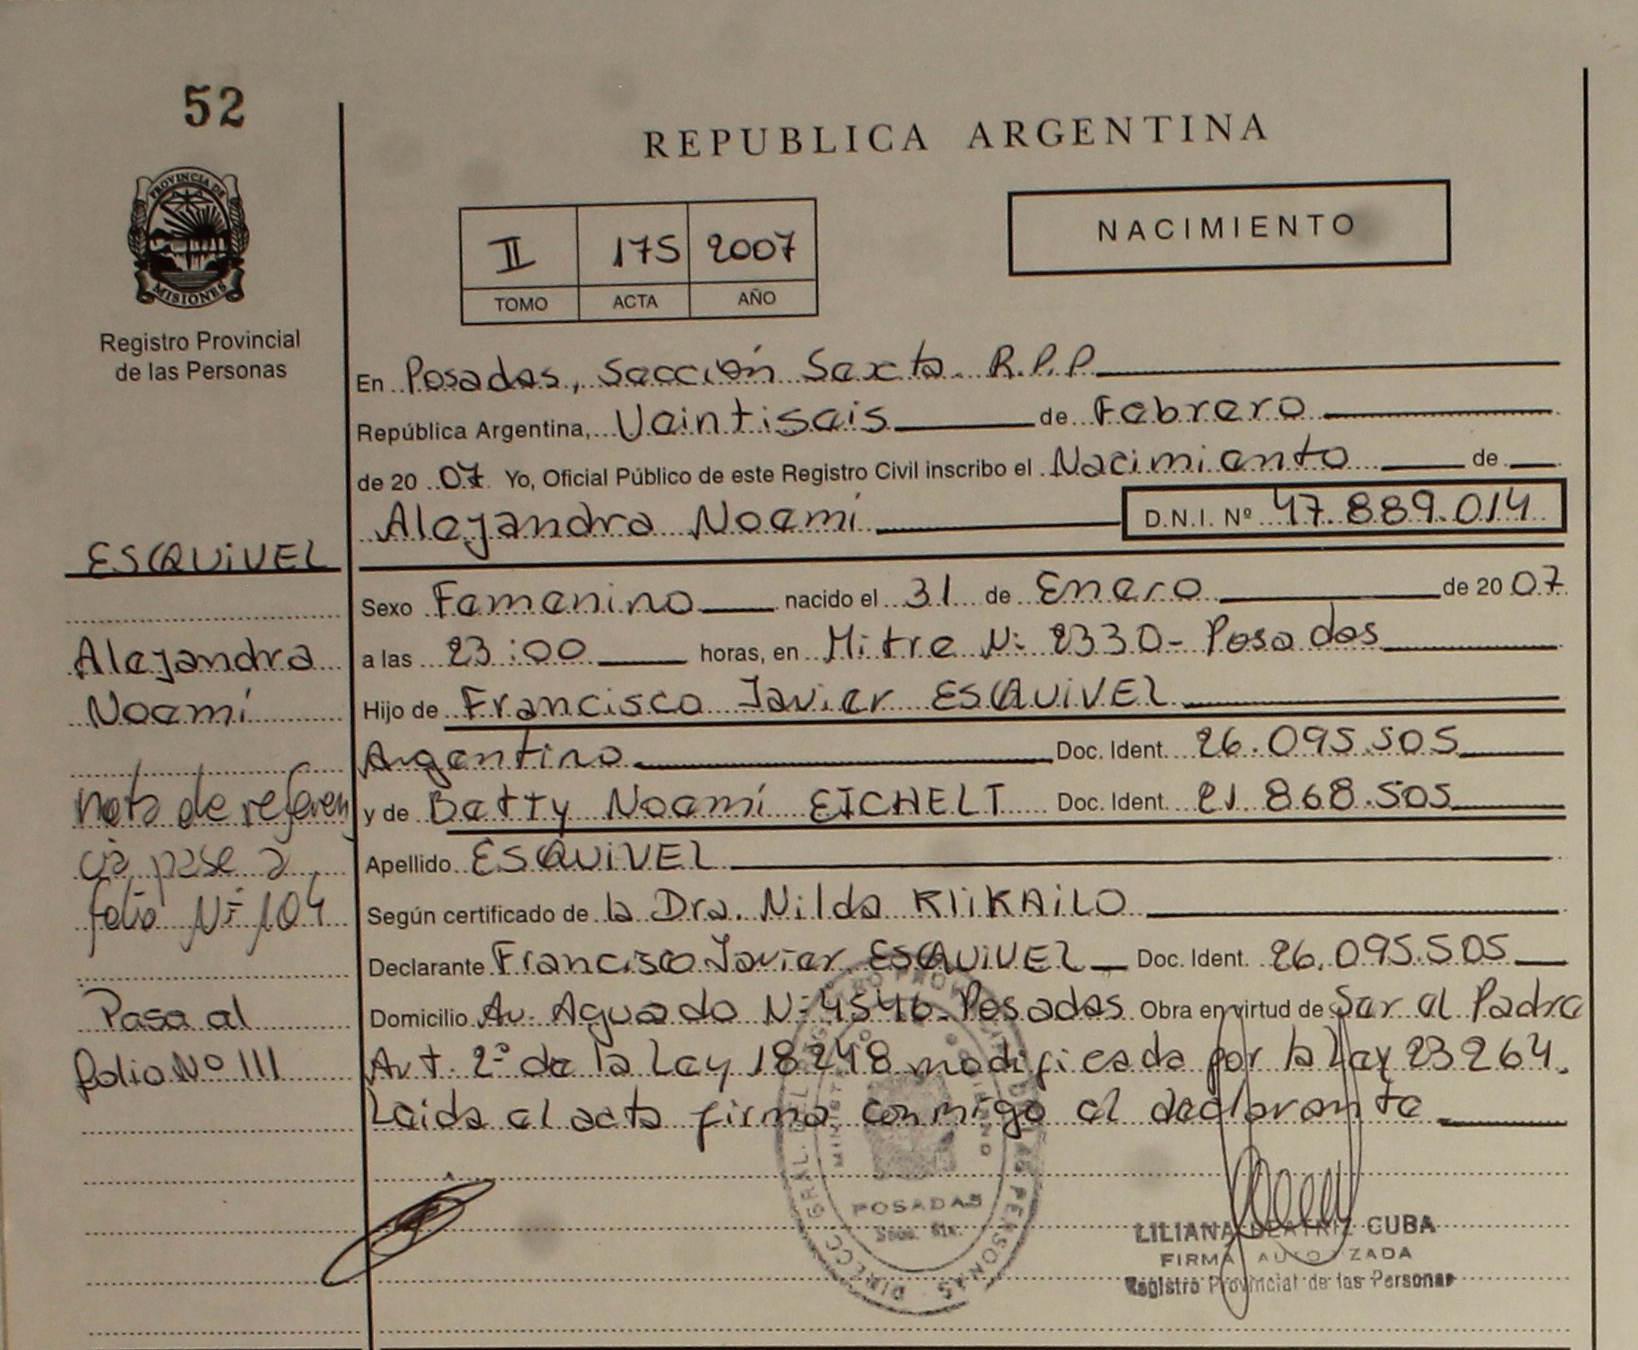 52
REPUBLICA ARGENTINA
PROVINCIA DE
MISIONES
Registro Provincial
de las Personas
II 175 2007
TOMO ACTA AÑO
NACIMIENTO
En Posadas, Sección Sexta. R.P.P.
República Argentina, Veintiseis de Febrero
de 20 07 Yo, Oficial Público de este Registro Civil inscribo el Nacimiento de
Alejandra Noemí D.N.I. Nº 47.889.014
ESQUIVEL
Sexo Femenino nacido el 31 de Enero de 20 07
Alejandra
a las 23:00 horas, en Mitre Nº 2330- Posadas
Noemí
Hijo de Francisco Javier ESQUIVEL
Argentino Doc. Ident. 26.095.505
nota de referen
y de Betty Noemí EICHELT Doc. Ident. 21.868.505
cia pase a
Apellido ESQUIVEL
folio Nº 104
Según certificado de la Dra. Nilda KLIKAILO
Declarante Francisco Javier ESQUIVEL Doc. Ident. 26.095.505
Pasa al
Domicilio Av. Aguado Nº 4546. Posadas Obra en virtud de Ser el Padre
folio Nº 111
Art. 2º de la Ley 18248 modificada por la Ley 23264.
Leida el acta firma conmigo el declarante
POSADAS
LILIANA BEATRIZ CUBA
FIRMA AUTORIZADA
Registro Provincial de las Personas